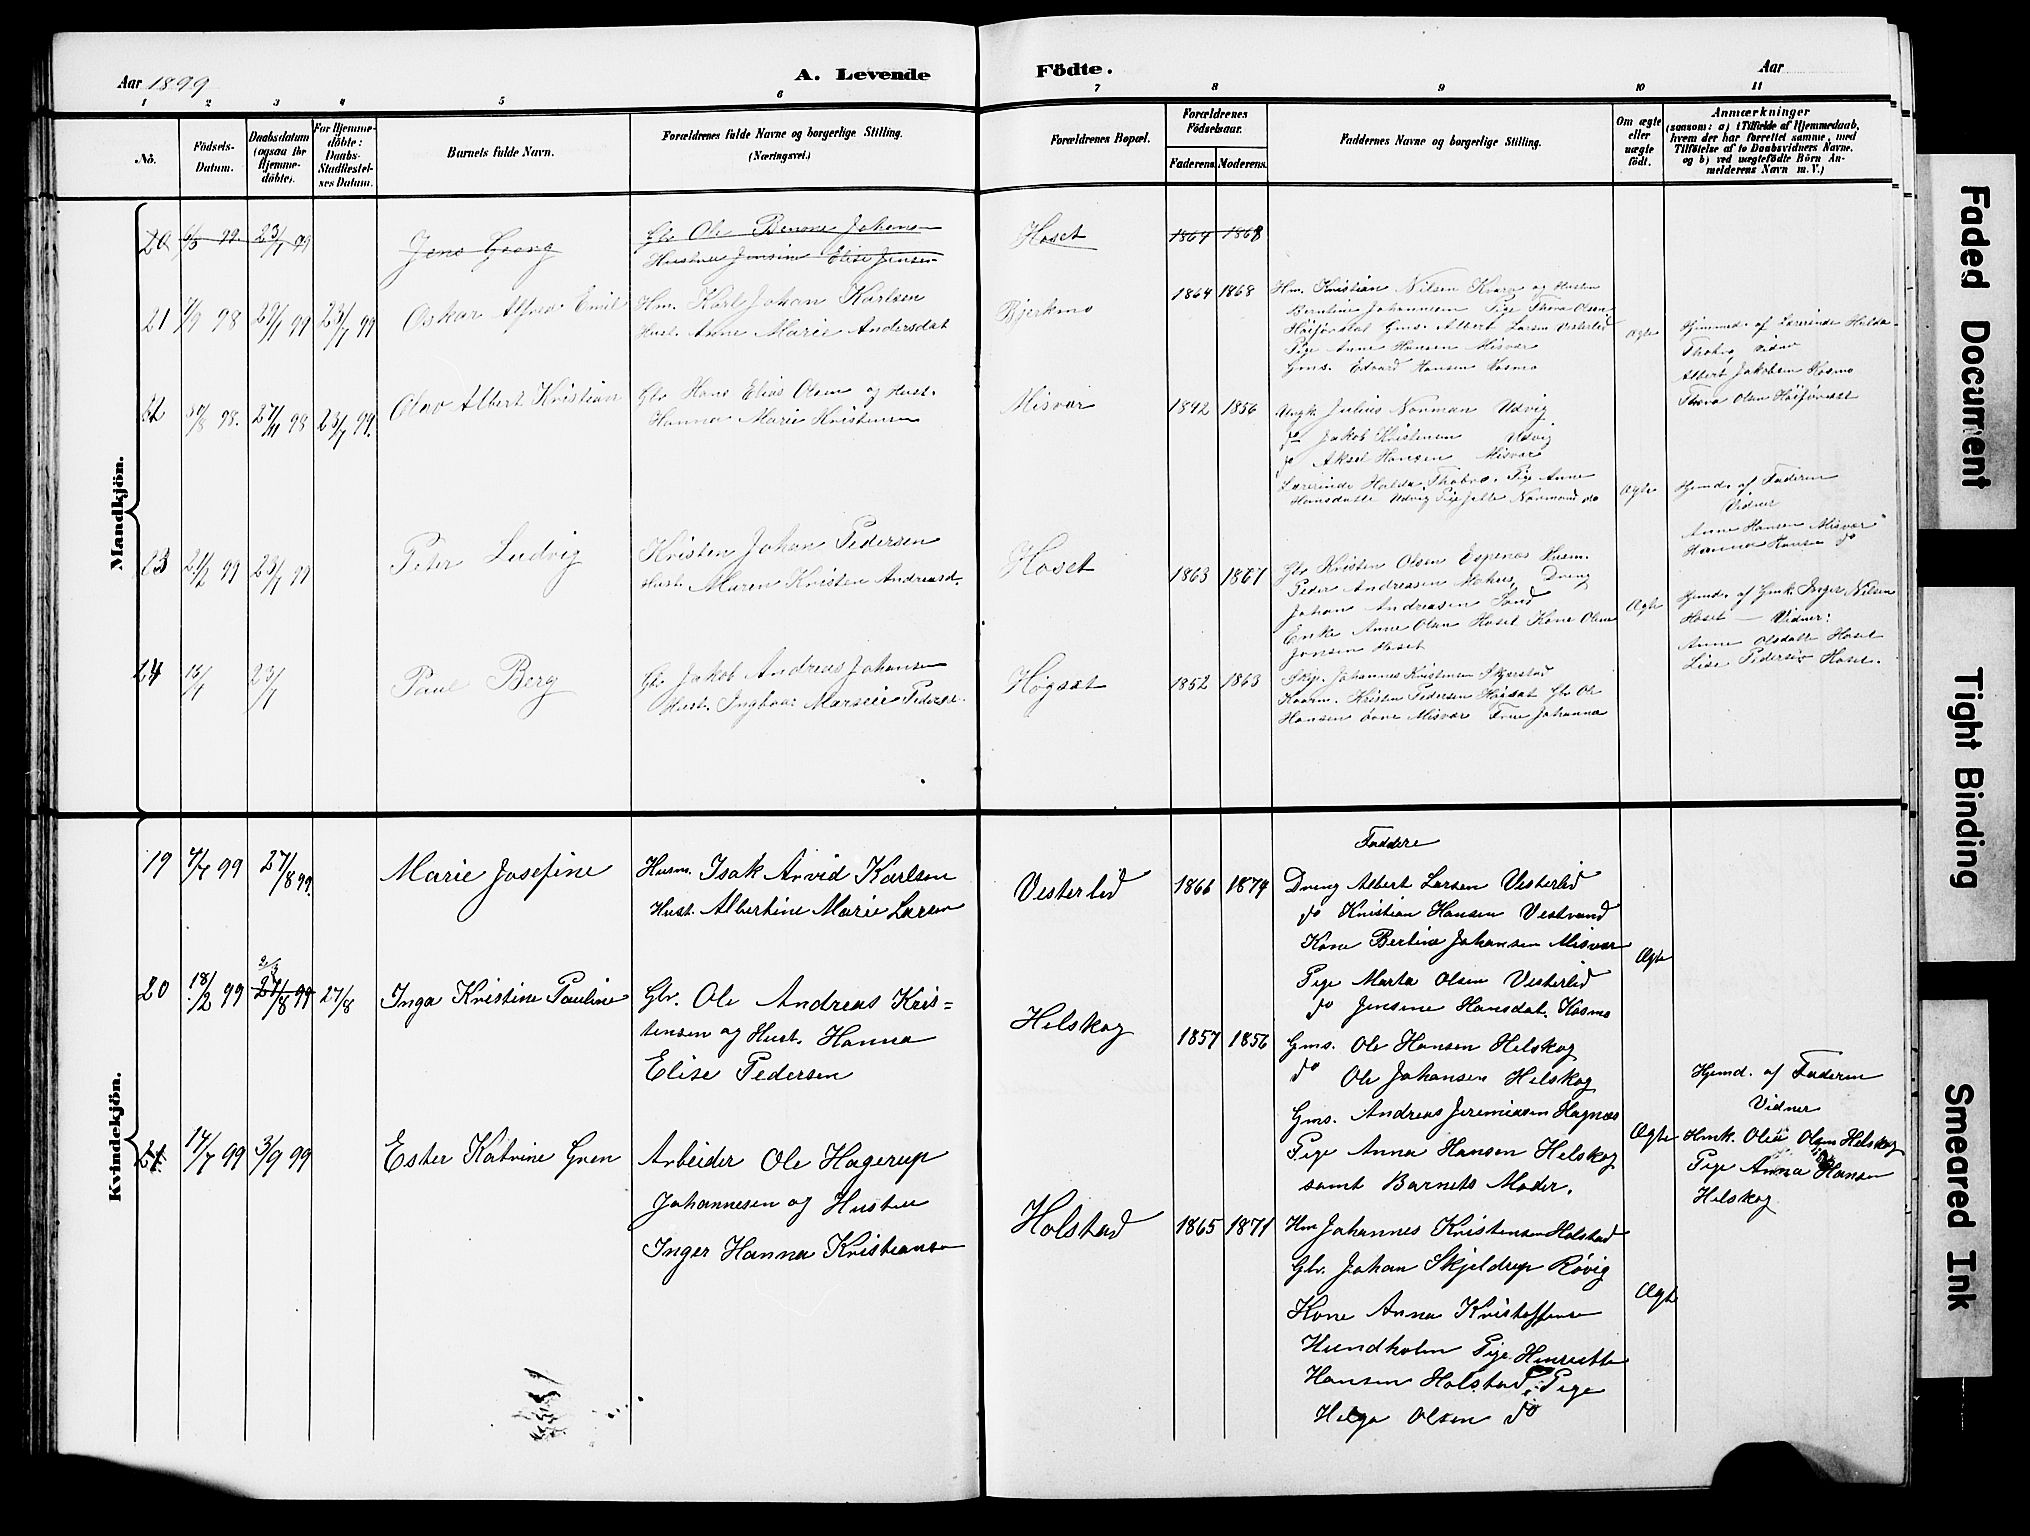 Aar 1899
A. Levende Födte.
Aar
1 2 3 4 5 6 7 8 9 10 11
No.
Födsels-Datum.
Daabsdatum (ogsaa for Hjemme-döbte).
For Hjemme-döbte: Daabs-Stadfæstel-ses Datum.
Barnets fulde Navn.
Forældrenes fulde Navne og borgerlige Stilling.
(Næringsvei.)
Forældrenes Bopæl.
Forældrenes Födselsaar.
Faderens. Moderens.
Faddernes Navne og borgerlige Stilling.
Om ægte eller uægte födt.
Anmærkninger
(saasom: a) i Tilfælde af Hjemmedaab,
hvem der har forrettet samme, med
Tilföielse af to Daabsvidners Navne,
og b) ved uægtefödte Börn An-
melderens Navn m. V.)
Mandkjön.
20 6/3 99. 23/7 99 Jens Georg
Gbr Ole Johansen
Hustru Jensine Elise Jensen
Hoset 1864 1868
21 7/9 98 29/1 99 23/7 99 Oskar Alfred Emil
Hm. Karl Johan Karlsen
Hust. Anne Marie Andersdat
Bjerkmo 1864 1868
Hm. Kristian Nilsen Kvarv og Hustru
Berntine Johannesen Pige Thora Olsen
Gms. Albert Larsen Vesterlid
Pige Anne Hansen Misvær
Gms. Edvard Hansen Kosmo
Ægte
Hjemmed. af Lærerinde Halda
Vidner
Albert Jakobsen Kosmo
Thora Olsen
22 30/8 98. 27/11 98 23/7 99. Olav Albert Kristian
Gbr Hans Elias Olsen og Hust.
Hanna Marie Kristensen
Misvær 1842 1856
Ungk Julius Norman Udvig
do Jakob Kristensen Udvig
do Aksel Hansen Misvær
Lærerinde Halda Pige Anne
Hansdatte Udvig Pige Normand do
Ægte
Hjemd. af Faderen
Vidner
Anne Hansen Misvær
Hanna Hansen do
23 21/2 99 23/7 99 Peter Ludvig
Kristen Johan Pedersen
Hust Maren Kristen Andreasd.
Hoset 1863 1867
Gbr Kristen Olsen Espenes Husm.
Peder Andreasen Dreng
Johan Andreasen Sand
Enke Anne Olsen Hoset Kone Oline
Jensen Hoset
Ægte
Hjemd. af Gmk. Inger Nilsen
Hoset — Vidner:
Anne Olsdatte Hoset
Lise Pedersen Hoset.
24 23/7 Paul Berg
Gbr Jakob Andreas Johansen
Hust. Ingboar Marselie Peders
Høgset 1852 1863
Skip. Johannes Kristensen Skjerstad
Kaarm. Kristen Pedersen Høgset Gbr Ole
Hansen øvre Misvær Frue Johanna
Kvindekjön.
Faddere
19 7/7 99 27/8 99. Marie Josefine
Husm. Isak Arvid Karlsen
Hust. Albertine Marie Larsen
Vesterlid 1866 1874
Dreng Albert Larsen Vesterlid
do Kristian Hansen Vestvand
Kone Berline Johansen Misvær
Pige Marta Olsen Vesterlid
do Jensine Hansdat. Kosmo
Ægte
20 18/2 99 2/3 27/8 99 27/8 Inga Kristine Pauline
Gbr. Ole Andreas Kris=
tensen og Hust. Hanna
Elise Pedersen
Helskog 1857 1856
Gms. Ole Hansen Helskog
do Ole Johansen Helskog
Gms. Andreas Jeremiasen Hagnæs
Pige Anna Hansen Helskog
samt Barnets Moder.
Ægte
Hjemd. af Faderen
Vidner
Hmk. Olea Olsen Helskog
Pige Anna Hansen
Helskog
21. 14/7 99 3/9 99 Ester Katrine Gren
Arbeider Ole Hagerup
Johannesen og Hustru
Inger Hanna Kristianse
Holstad 1865 1871
Hm Johannes Kristensen Holstad
Gbr. Johan Skjeldrup Røvig
Kone Anna Kristoffense
Hundholm Pige Henriette
Hansen Holstad, Pige
Helga Olsen do
Ægte
Faded Document
Tight Binding
Smeared Ink